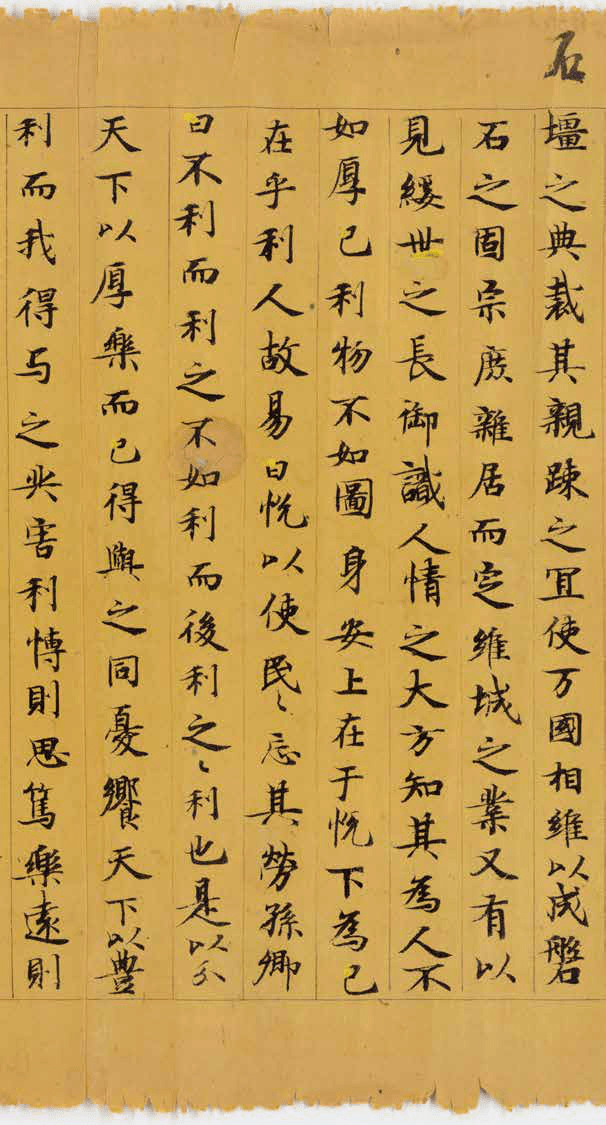 石
壃之典裁其親踈之冝使万國相維以成磐
石之固宗庶雜居而定維城之業又有以
見綏世之長御識人情之大方知其為人不
如厚已利物不如圖身安上在于悅下為已
在乎利人故易曰悅以使民〻忘其勞孫卿
曰不利而利之不如利而後利之〻利也是以分
天下以厚樂而已得與之同憂饗天下以豊
利而我得与之共害利愽則思篤樂遠則